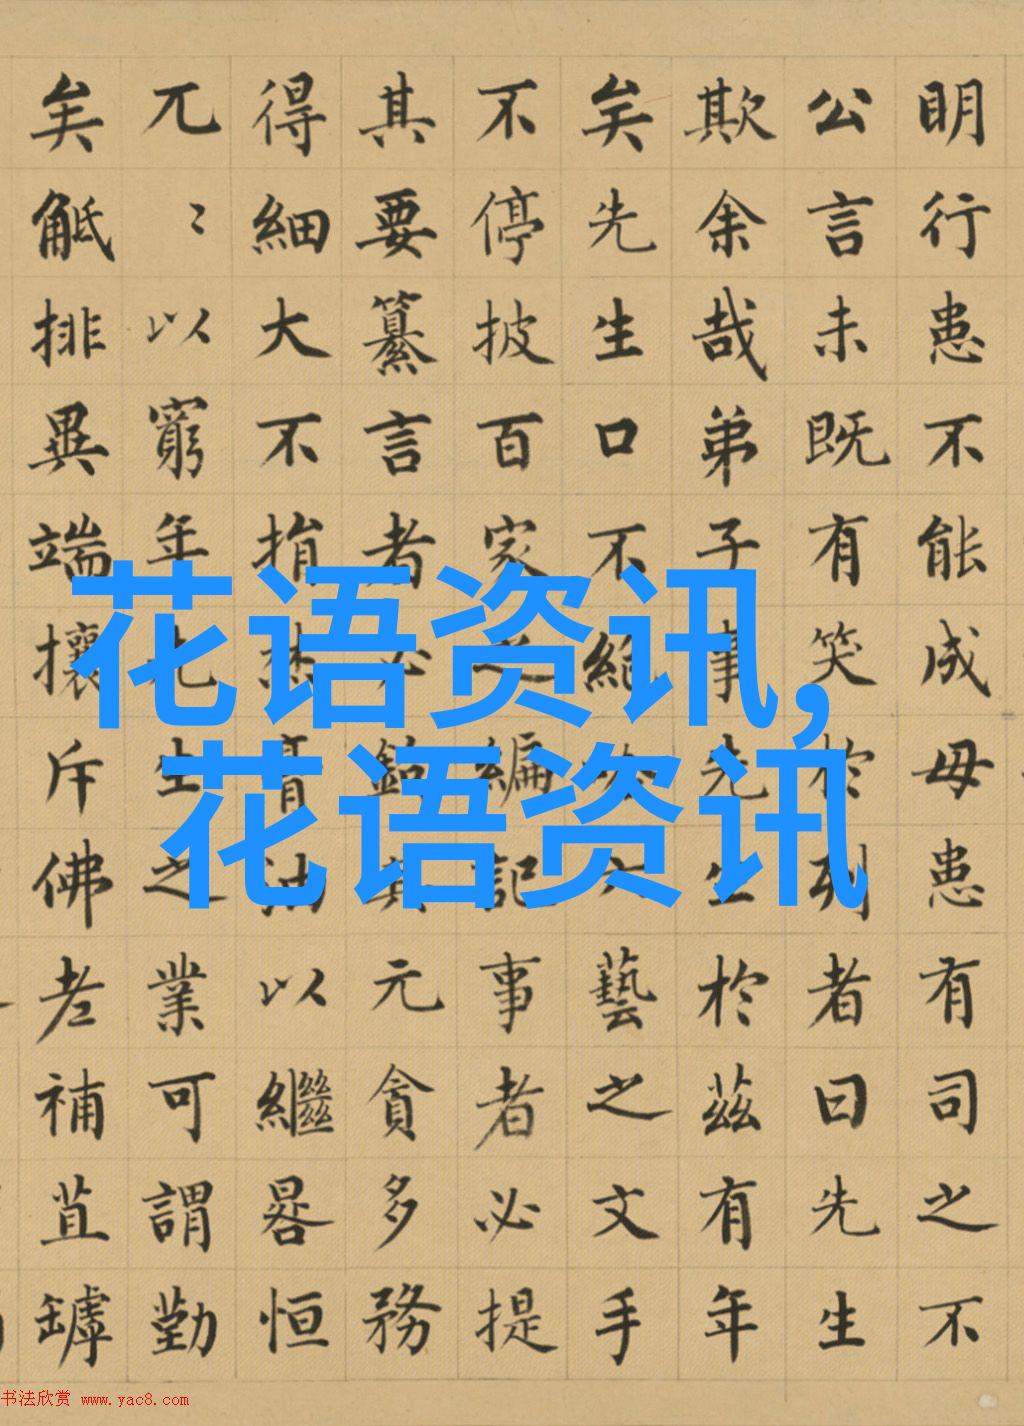 明行患不能成毋患有司之不
公言未既有笑於列者曰先生
欺余哉弟子事先生於茲有年
矣先生口不絕六藝之文手
不停披百家之編記事者必提
其要纂言者必鉤其元貪多務
得細大不捐焚膏油以繼晷恒
兀〻以窮年先生之業可謂勤
矣觝排異端攘斥佛老補苴罅
花语资讯,
花语资讯
书法欣赏 www.yac8.com